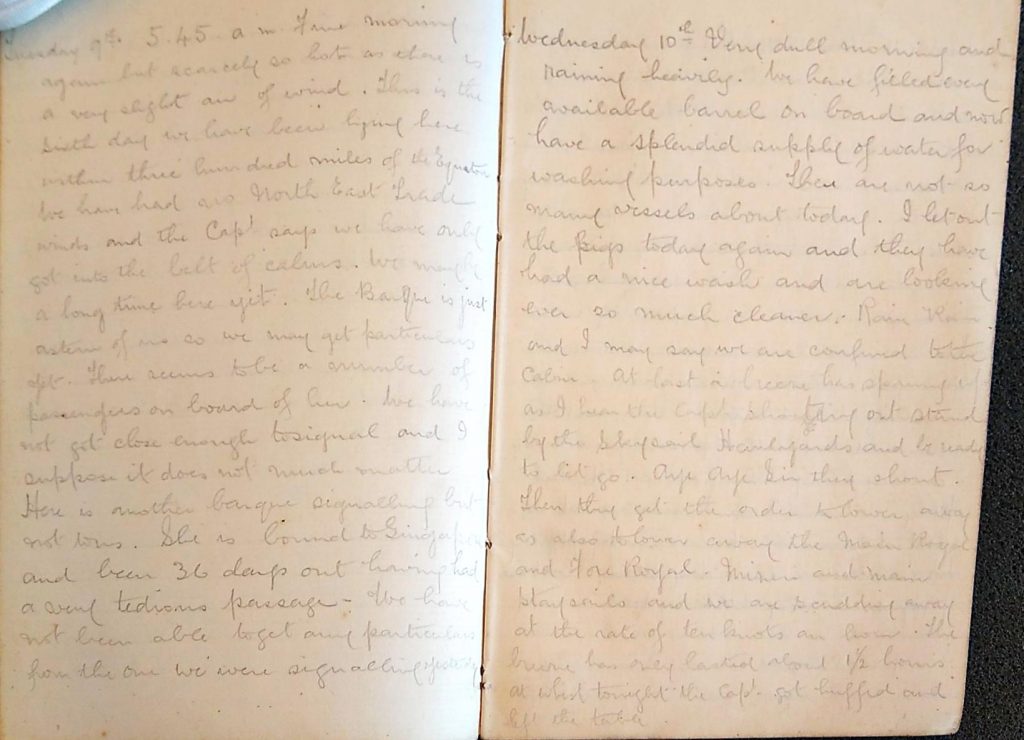 Tuesday 9th. 5.45. a.m. Fine morning
again but scarcely so hot as there is
a very slight air of wind. This is the
sixth day we have been lying here
within three hundred miles of the Equator
We have had no North East Trade
winds and the Capt says we have only
got into the belt of calms. We may be
a long time here yet. The Barque is just
astern of us so we may get particulars
yet. There seems to be a number of
passengers on board of her. We have
not got close enough to signal and I
suppose it does not much matter
Here is another barque signalling but
not to us. She is bound to Singapore
and been 36 days out having had
a very tedious passage - We have
not been able to get any particulars
from the one we were signalling yesterday
Wednesday 10th Very dull morning and
raining heavily. We have filled every
available barrel on board and now
have a splendid supply of water for
washing purposes. There are not so
many vessels about today. I let out
the pigs today again and they have
had a nice wash and are looking
ever so much cleaner. Rain Rain
and I may say we are confined to the
Cabin. At last a breeze has sprung up
as I hear the Capt shouting out stand
by the Skysail Haulyards and be ready
to let go. Aye Aye Sir they shout.
Then they get the order to lower away
as also to lower away the Main Royal
and Fore Royal. Mizen and main
staysails and we are scudding away
at the rate of ten knots an hour. The
breeze has only lasted about 1/2 hours
at whist tonight the Capt. got huffed and
left the table.